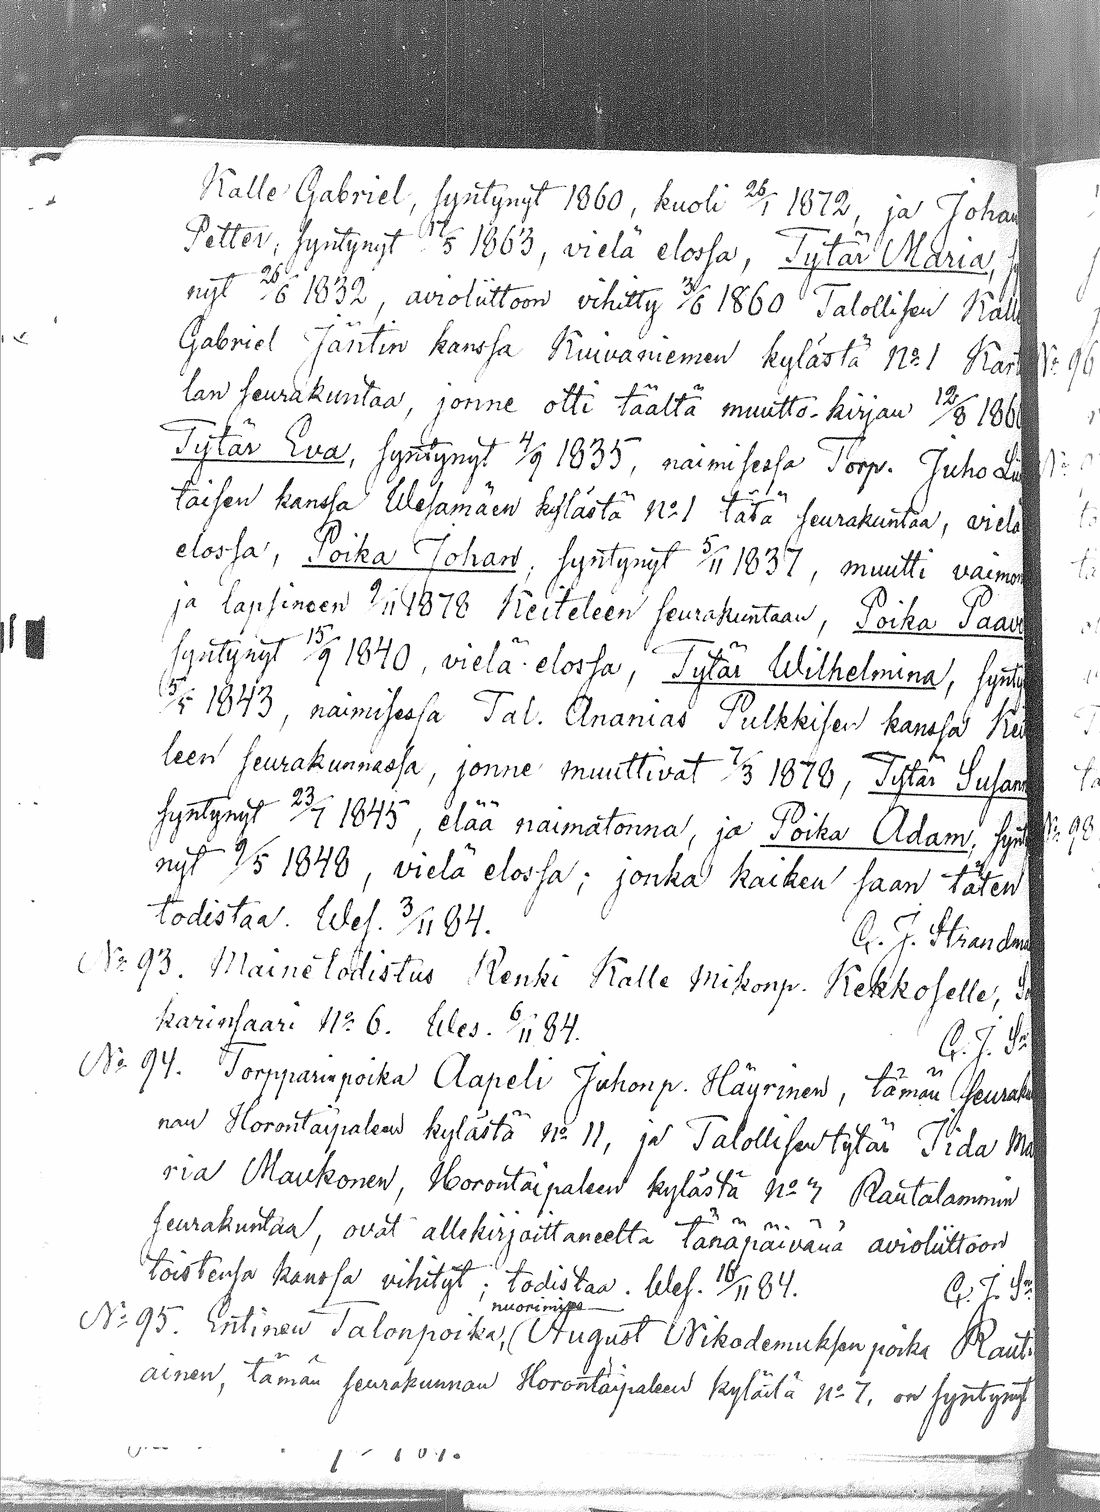 Kalle Gabriel, syntynyt 1860, kuoli 26/1 1872, ja Johan
Petter, syntynyt 17/5 1863, vielä elossa, Tytär Maria, sy
nyt 26/6 1832, avioliittoon vihitty 3/6 1860 Talollisen Kalle
Gabriel Jäntin kanssa Kuivaniemen kylästä No 1 Kart
lan seurakuntaa, jonne otti täältä muutto-kirjan 12/8 1860
Tytär Eva, syntynyt 4/9 1835, naimisessa Torp. Juho Lii
taisen kanssa Wesamäen kylästä No 1 tätä seurakuntaa, vielä
elossa, Poika Johan, syntynyt 5/11 1837, muutti vaimon
ja lapsineen 9/11 1878 Keiteleen seurakuntaan, Poika Paavo
syntynyt 15/9 1840, vielä elossa, Tytär Wilhelmina, synty
5/5 1843, naimisessa Tal. Ananias Pulkkisen kanssa Kei
leen seurakunnassa, jonne muuttivat 7/3 1878, Tytär Susann
syntynyt 23/7 1845, elää naimatonna, ja Poika Adam, synt
nyt 9/5 1848, vielä elossa; jonka kaiken saan täten
todistaa. Wes. 3/11 84.
G. J. Strandma
No 93. Mainetodistus Renki Kalle Mikonp. Kekkoselle, So
karinsaari No 6. Wes. 6/11 84.
G. J. Sn
No 94. Torpparinpoika Aapeli Juhonp. Häyrinen, tämän seuraku
nan Horontaipaleen kylästä No 11, ja Talollisentytär Iida Ma
ria Maukonen, Horontaipaleen kylästä No 7 Rautalammin
seurakuntaa, ovat allekirjoittaneelta tänäpäivänä avioliittoon
toistensa kanssa vihityt; todistaa. Wes. 16/11 84.
G. J. Sn
nuorimies
No 95. Entinen Talonpoika, (August Nikodemuksen poika Rauti
ainen, tämän seurakunnan Horontaipaleen kylältä No 7, on syntynyt
No 96
No 98